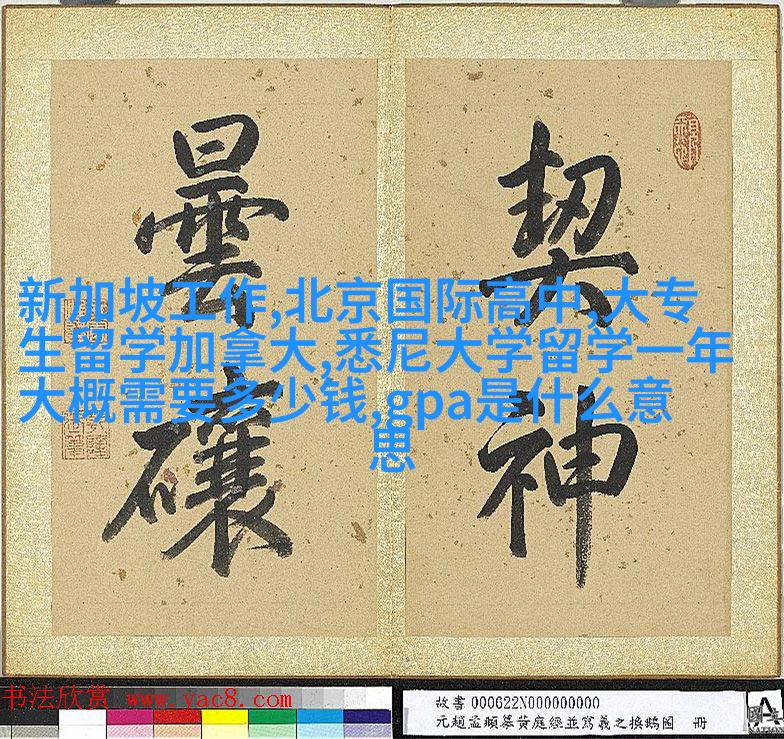 契神
曇礦
新加坡工作,北京国际高中,大专
生留学加拿大,悉尼大学留学一年
大概需要多少钱,gpa是什么意
思
书法欣赏 www.yac8.com
故書000622N000000000
元趙孟頫墓黃庭經並寫羲之換鵝圖 冊